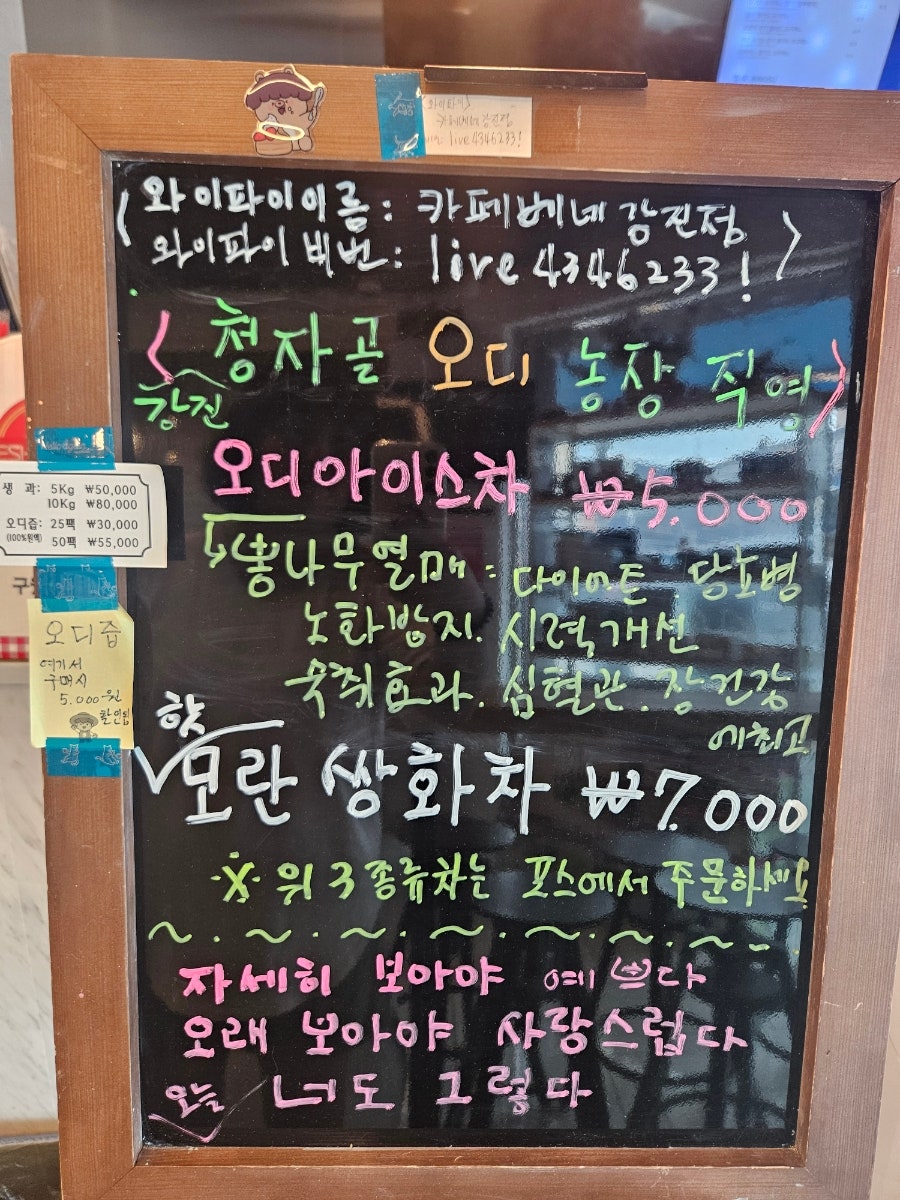 (와이파이)
카페베네강진점
live4346233!
(와이파이이름: 카페베네강진점)
와이파이 비번: live4346233!
<청자골 오디 농장 직영>
강진
오디아이스차 ₩5.000
뽕나무열매: 다이어트 당뇨병
노화방지. 시력개선
숙취효과. 심혈관. 장건강
에최고
핫
모란 쌍화차 ₩7.000
※ 위 3종류차는 포스에서 주문하세요
~.~.~.~.~.~.~-.
자세히 보아야 예쁘다
오래 보아야 사랑스럽다
오늘 너도 그렇다
생 과: 5Kg ₩50,000
10Kg ₩80,000
오디즙: 25팩 ₩30,000
(100%원액) 50팩 ₩55,000
오디즙
여기서
구매시
5.000원
할인됨